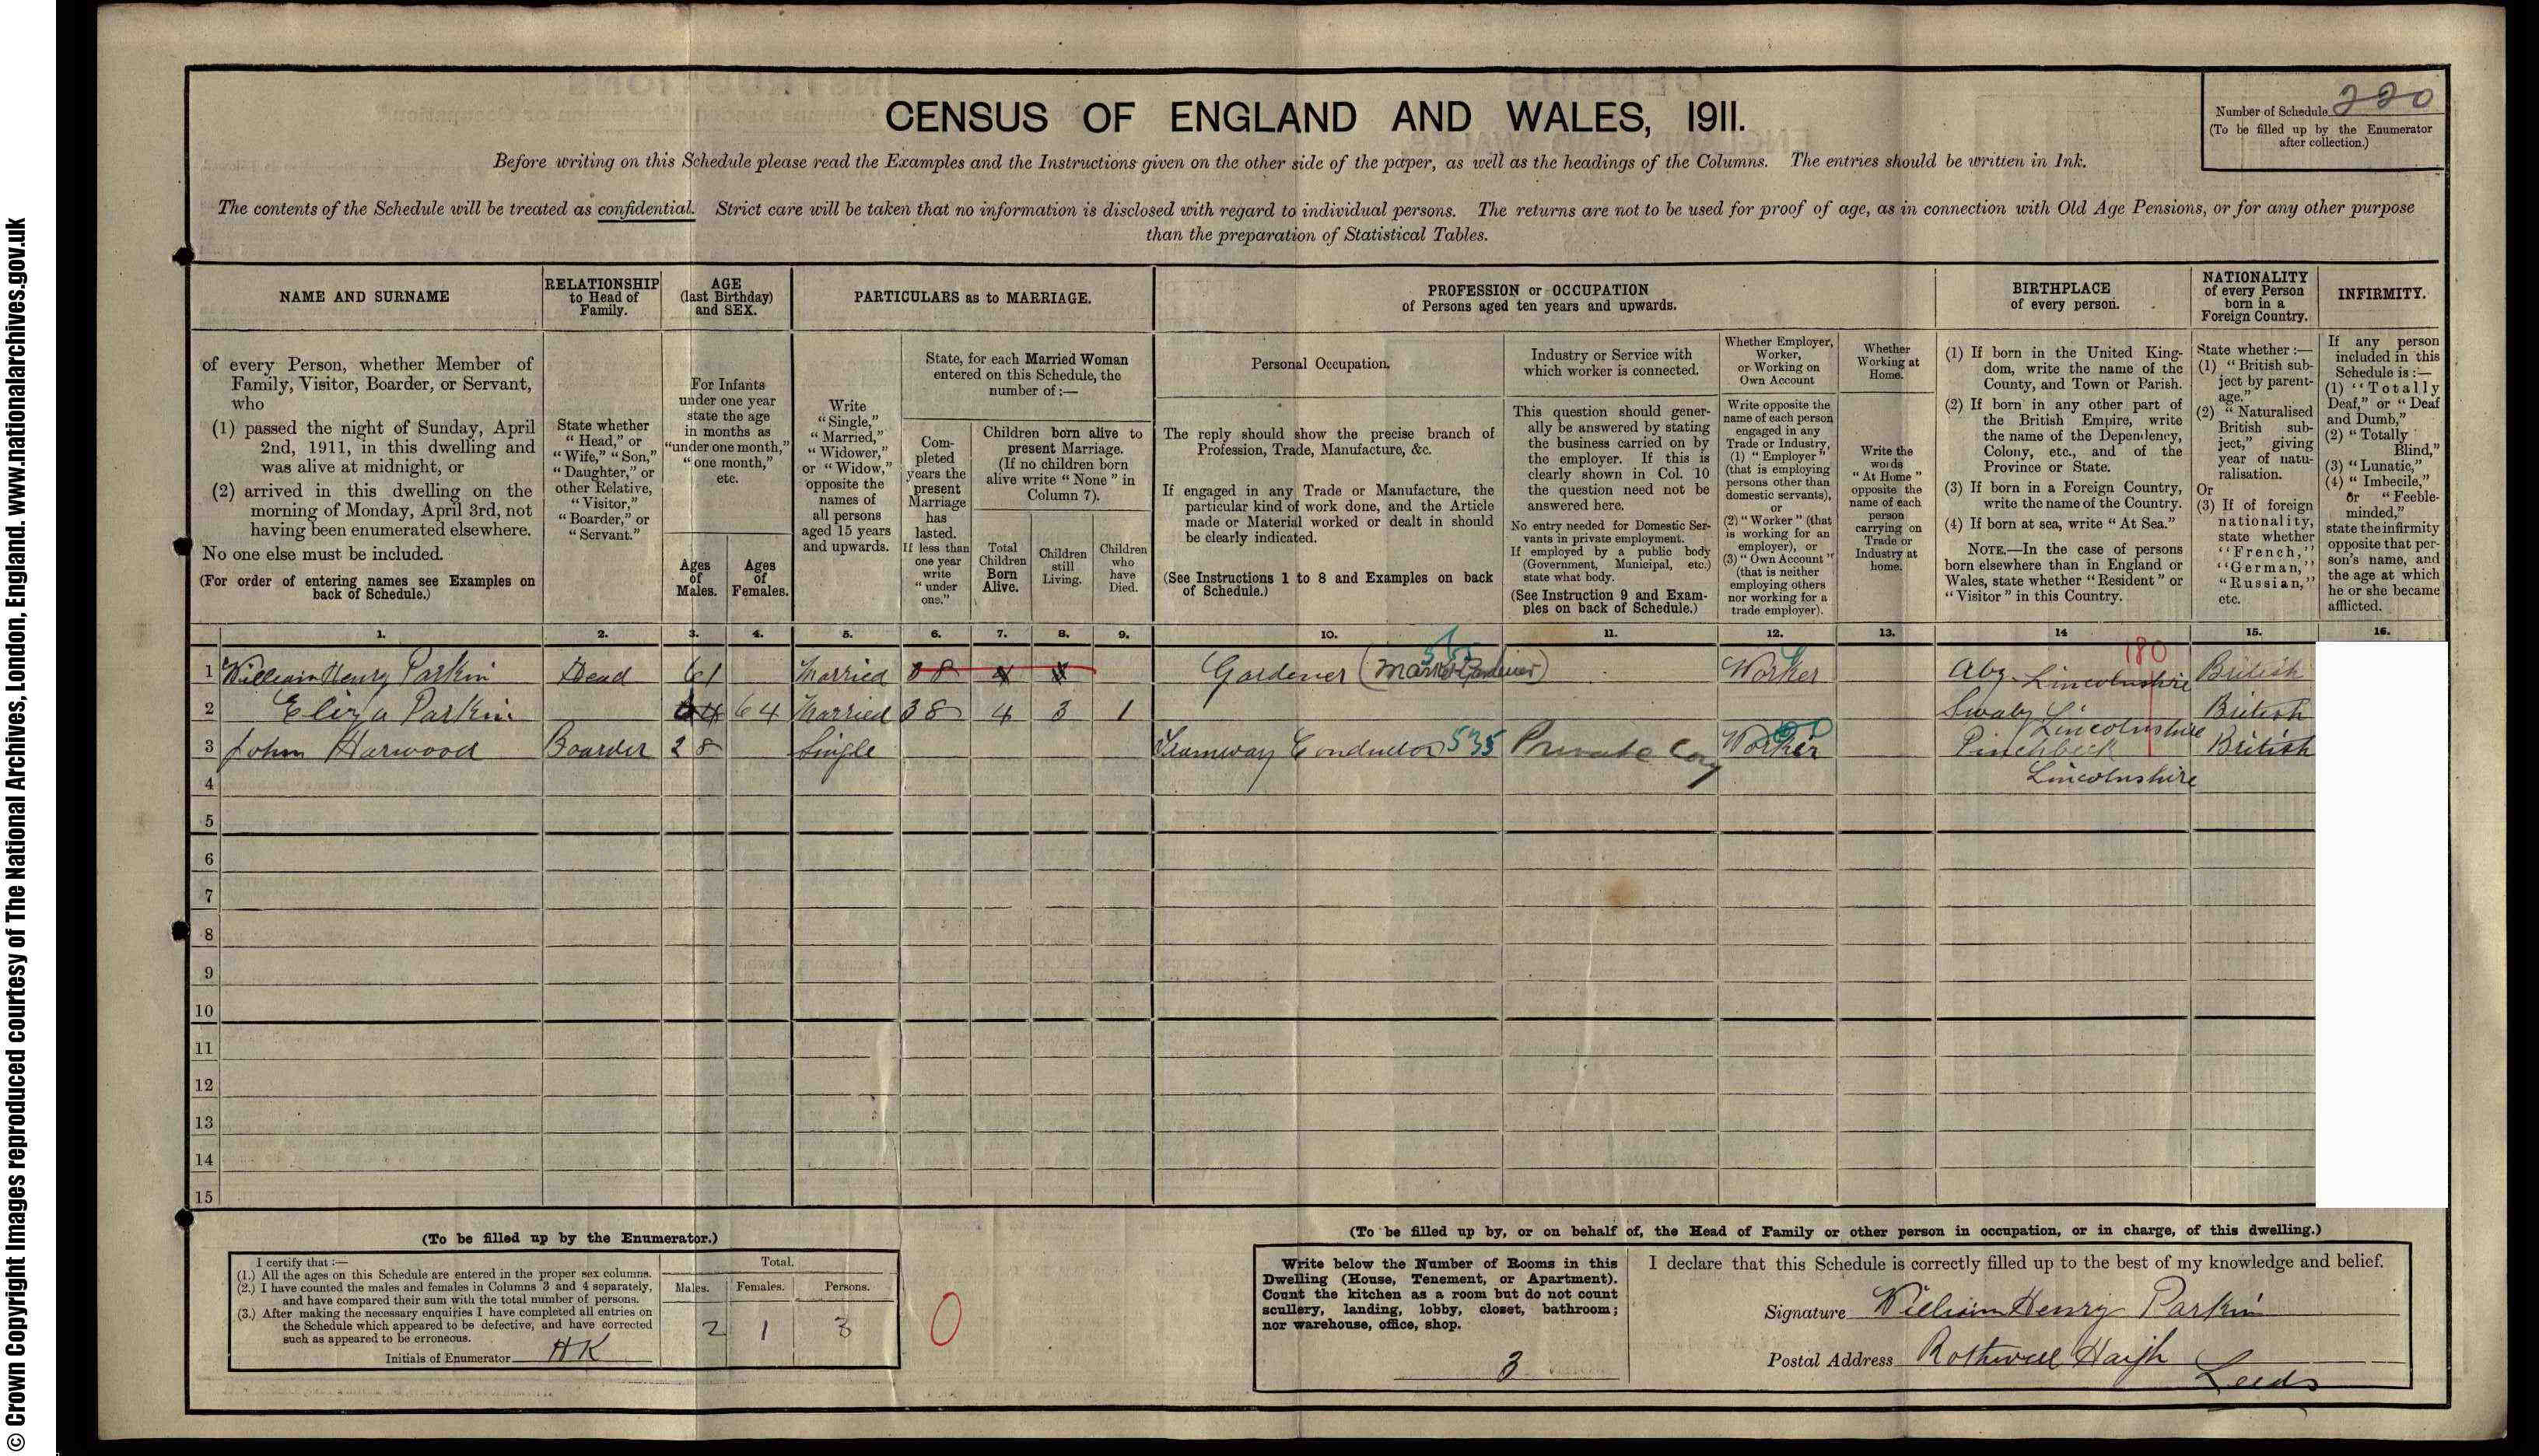 © Crown Copyright Images reproduced courtesy of The National Archives, London, England. www.nationalarchives.gov.uk
CENSUS OF ENGLAND AND WALES, 1911.
Number of Schedule 220
(To be filled up by the Enumerator
after collection.)
Before writing on this Schedule please read the Examples and the Instructions given on the other side of the paper, as well as the headings of the Columns. The entries should be written in Ink.
The contents of the Schedule will be treated as confidential. Strict care will be taken that no information is disclosed with regard to individual persons. The returns are not to be used for proof of age, as in connection with Old Age Pensions, or for any other purpose
than the preparation of Statistical Tables.
NAME AND SURNAME
of every Person, whether Member of
Family, Visitor, Boarder, or Servant,
who
(1) passed the night of Sunday, April
2nd, 1911, in this dwelling and
was alive at midnight, or
(2) arrived in this dwelling on the
morning of Monday, April 3rd, not
having been enumerated elsewhere.
No one else must be included.
(For order of entering names see Examples on
back of Schedule.)
RELATIONSHIP
to Head of
Family.
State whether
"Head," or
"Wife," "Son,"
"Daughter," or
other Relative,
"Visitor,"
"Boarder," or
"Servant."
AGE
(last Birthday)
and SEX.
For Infants
under one year
state the age
in months as
"under one month,"
"one month,"
etc.
Ages
of
Males.
Ages
of
Females.
PARTICULARS as to MARRIAGE.
Write
"Single,"
"Married,"
"Widower,"
or "Widow,"
opposite the
names of
all persons
aged 15 years
and upwards.
State, for each Married Woman
entered on this Schedule, the
number of:—
Com-
pleted
years the
present
Marriage
has
lasted.
If less than
one year
write
"under
one."
Children born alive to
present Marriage.
(If no children born
alive write "None" in
Column 7).
Total
Children
Born
Alive.
Children
still
Living.
Children
who
have
Died.
PROFESSION or OCCUPATION
of Persons aged ten years and upwards.
Personal Occupation.
The reply should show the precise branch of
Profession, Trade, Manufacture, &c.
If engaged in any Trade or Manufacture, the
particular kind of work done, and the Article
made or Material worked or dealt in should
be clearly indicated.
(See Instructions 1 to 8 and Examples on back
of Schedule.)
Industry or Service with
which worker is connected.
This question should gener-
ally be answered by stating
the business carried on by
the employer. If this is
clearly shown in Col. 10
the question need not be
answered here.
No entry needed for Domestic Ser-
vants in private employment.
If employed by a public body
(Government, Municipal, etc.)
state what body.
(See Instruction 9 and Exam-
ples on back of Schedule.)
Whether Employer,
Worker,
or Working on
Own Account
Write opposite the
name of each person
engaged in any
Trade or Industry,
(1) "Employer"
(that is employing
persons other than
domestic servants),
or
(2) "Worker" (that
is working for an
employer), or
(3) "Own Account"
(that is neither
employing others
nor working for a
trade employer).
Whether
Working at
Home.
Write the
words
"At Home"
opposite the
name of each
person
carrying on
Trade or
Industry at
home.
BIRTHPLACE
of every person.
(1) If born in the United King-
dom, write the name of the
County, and Town or Parish.
(2) If born in any other part of
the British Empire, write
the name of the Dependency,
Colony, etc., and of the
Province or State.
(3) If born in a Foreign Country,
write the name of the Country.
(4) If born at sea, write "At Sea."
NOTE.—In the case of persons
born elsewhere than in England or
Wales, state whether "Resident" or
"Visitor" in this Country.
NATIONALITY
of every Person
born in a
Foreign Country.
State whether:—
(1) "British sub-
ject by parent-
age."
(2) "Naturalised
British sub-
ject," giving
year of natu-
ralisation.
Or
(3) If of foreign
nationality,
state whether
"French,"
"German,"
"Russian,"
etc.
INFIRMITY.
If any person
included in this
Schedule is:—
(1) "Totally
Deaf," or "Deaf
and Dumb,"
(2) "Totally
Blind,"
(3) "Lunatic,"
(4) "Imbecile,"
or "Feeble-
minded,"
state the infirmity
opposite that per-
son's name, and
the age at which
he or she became
afflicted.
1. 2. 3. 4. 5. 6. 7. 8. 9. 10. 11. 12. 13. 14 15. 16.
180
1 William Henry Parkin Head 61 Married 38 Gardener (Market Gardener) Worker Aby Lincolnshire British
2 Eliza Parkin 64 64 Married 38 4 3 1 Swaby Lincolnshire British
3 John Harwood Boarder 28 Single Tramway Conductor 535 Private Coy Worker Pinchbeck British
4 Lincolnshire
5
6
7
8
9
10
11
12
13
14
15
(To be filled up by the Enumerator.)
I certify that:—
(1.) All the ages on this Schedule are entered in the proper sex columns.
(2.) I have counted the males and females in Columns 3 and 4 separately,
and have compared their sum with the total number of persons.
(3.) After making the necessary enquiries I have completed all entries on
the Schedule which appeared to be defective, and have corrected
such as appeared to be erroneous.
Initials of Enumerator HK
Total.
Males. Females. Persons.
2 1 3
0
(To be filled up by, or on behalf of, the Head of Family or other person in occupation, or in charge, of this dwelling.)
Write below the Number of Rooms in this
Dwelling (House, Tenement, or Apartment).
Count the kitchen as a room but do not count
scullery, landing, lobby, closet, bathroom;
nor warehouse, office, shop.
3
I declare that this Schedule is correctly filled up to the best of my knowledge and belief.
Signature William Henry Parkin
Postal Address Rothwell Haigh
Leeds